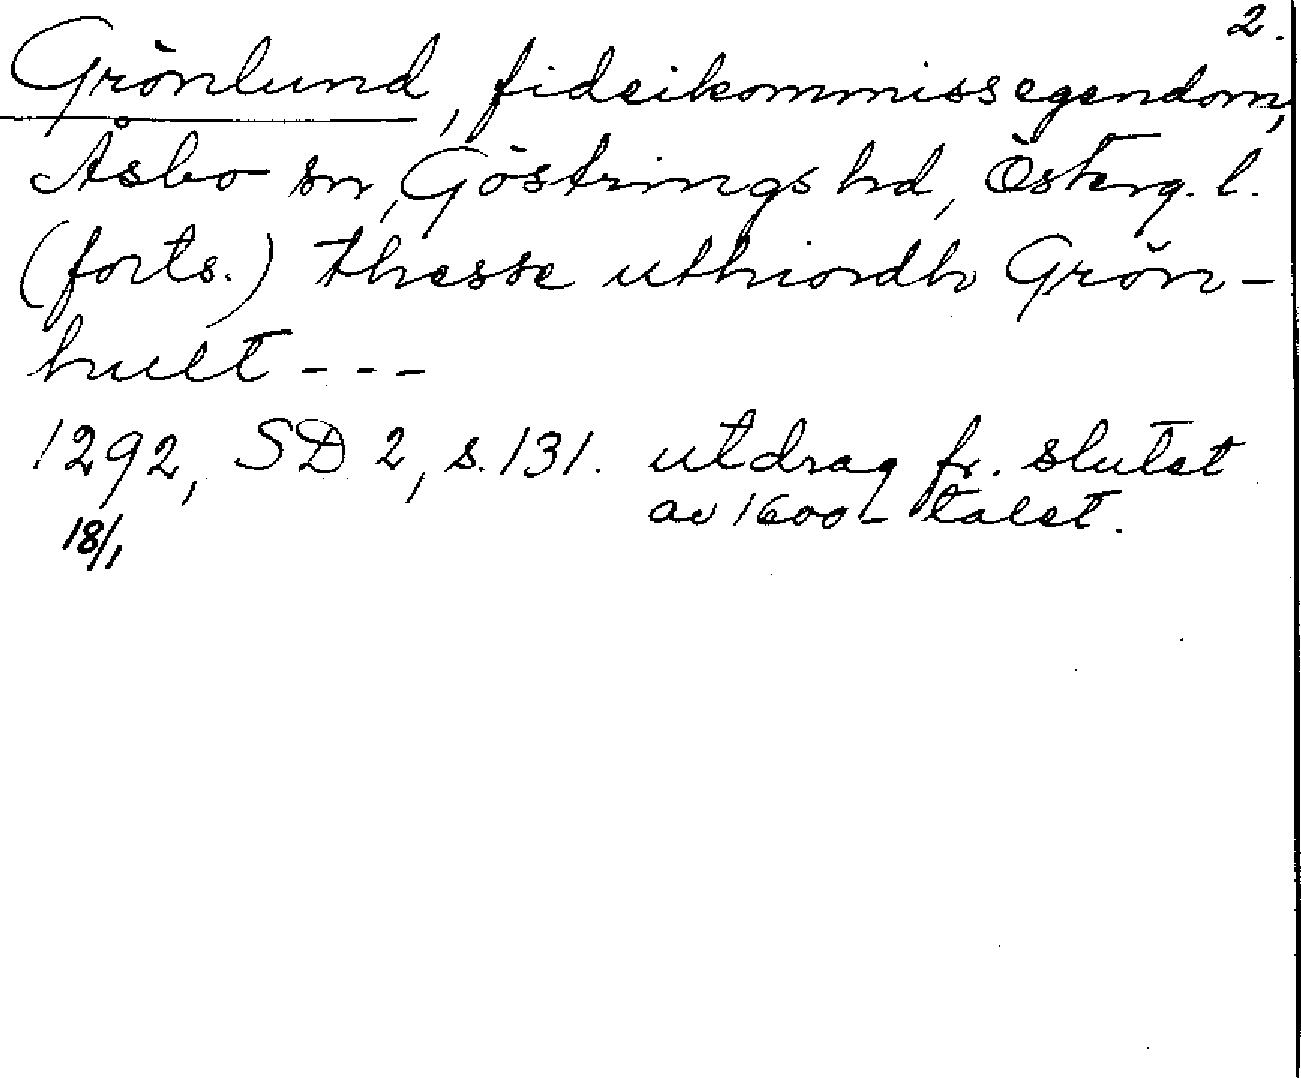 2.
Grönlund, fideikommissegendom,
Åsbo sn, Göstrings hd, Österg. l.
(forts.) thesse uthiordh Grön-
hult - - -
1292, SD 2, s. 131. utdrag fr. slutet
18/1 av 1600-talet.